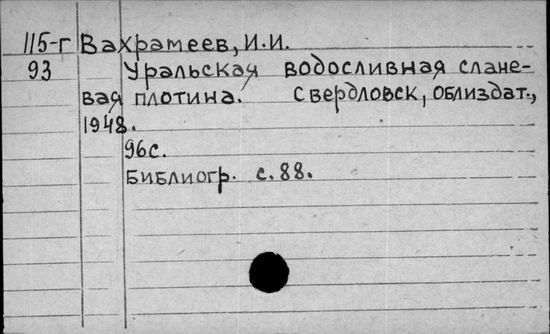 115-г Вахрамеев, И.И.
93 Уральская водосливная слане-
вая плотина. Свердловск, облиздат.,
1948.
96с.
Библиогр. с. 88.